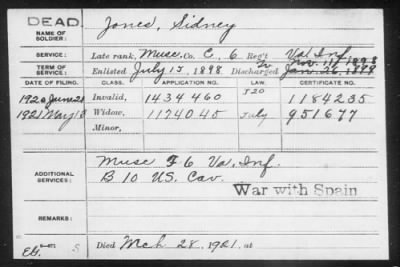 DEAD.
NAME OF SOLDIER: Jones, Sidney
SERVICE: Late rank, Musc. Co. E, 6 Reg't Va Inf
Nov. 11 1898
TERM OF SERVICE: Enlisted July 15, 1898 Discharged Jan. 26, 1899
DATE OF FILING. CLASS. APPLICATION NO. LAW. CERTIFICATE NO.
1920 June 21 Invalid, 1434460 J20 1184235
1921 May 13 Widow, 1174045 July 951677
Minor,
ADDITIONAL SERVICES:
Musc F 6 Va. Inf.
B 10 US. Cav.
War with Spain
REMARKS:
Died Mch 28, 1921, at